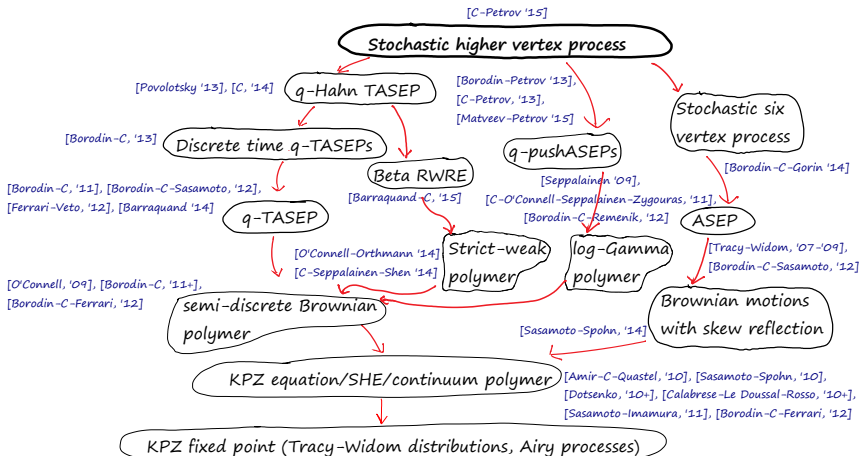 [C-Petrov '15]
Stochastic higher vertex process
[Povolotsky '13], [C, '14]
q-Hahn TASEP
[Borodin-Petrov '13],
[C-Petrov, '13],
[Matveev-Petrov '15]
Stochastic six
vertex process
[Borodin-C, '13]
Discrete time q-TASEPs
q-pushASEPs
Beta RWRE
[Borodin-C-Gorin '14]
[Borodin-C, '11], [Borodin-C-Sasamoto, '12],
[Ferrari-Veto, '12], [Barraquand '14]
q-TASEP
[Barraquand-C, '15]
[Seppalainen '09],
[C-O'Connell-Seppalainen-Zygouras, '11],
[Borodin-C-Remenik, '12]
ASEP
[O'Connell-Orthmann '14]
[C-Seppalainen-Shen '14]
Strict-weak
polymer
log-Gamma
polymer
[Tracy-Widom, '07-'09],
[Borodin-C-Sasamoto, '12]
[O'Connell, '09], [Borodin-C, '11+],
[Borodin-C-Ferrari, '12]
semi-discrete Brownian
polymer
Brownian motions
with skew reflection
[Sasamoto-Spohn, '14]
KPZ equation/SHE/continuum polymer
[Amir-C-Quastel, '10], [Sasamoto-Spohn, '10],
[Dotsenko, '10+], [Calabrese-Le Doussal-Rosso, '10+],
[Sasamoto-Imamura, '11], [Borodin-C-Ferrari, '12]
KPZ fixed point (Tracy-Widom distributions, Airy processes)